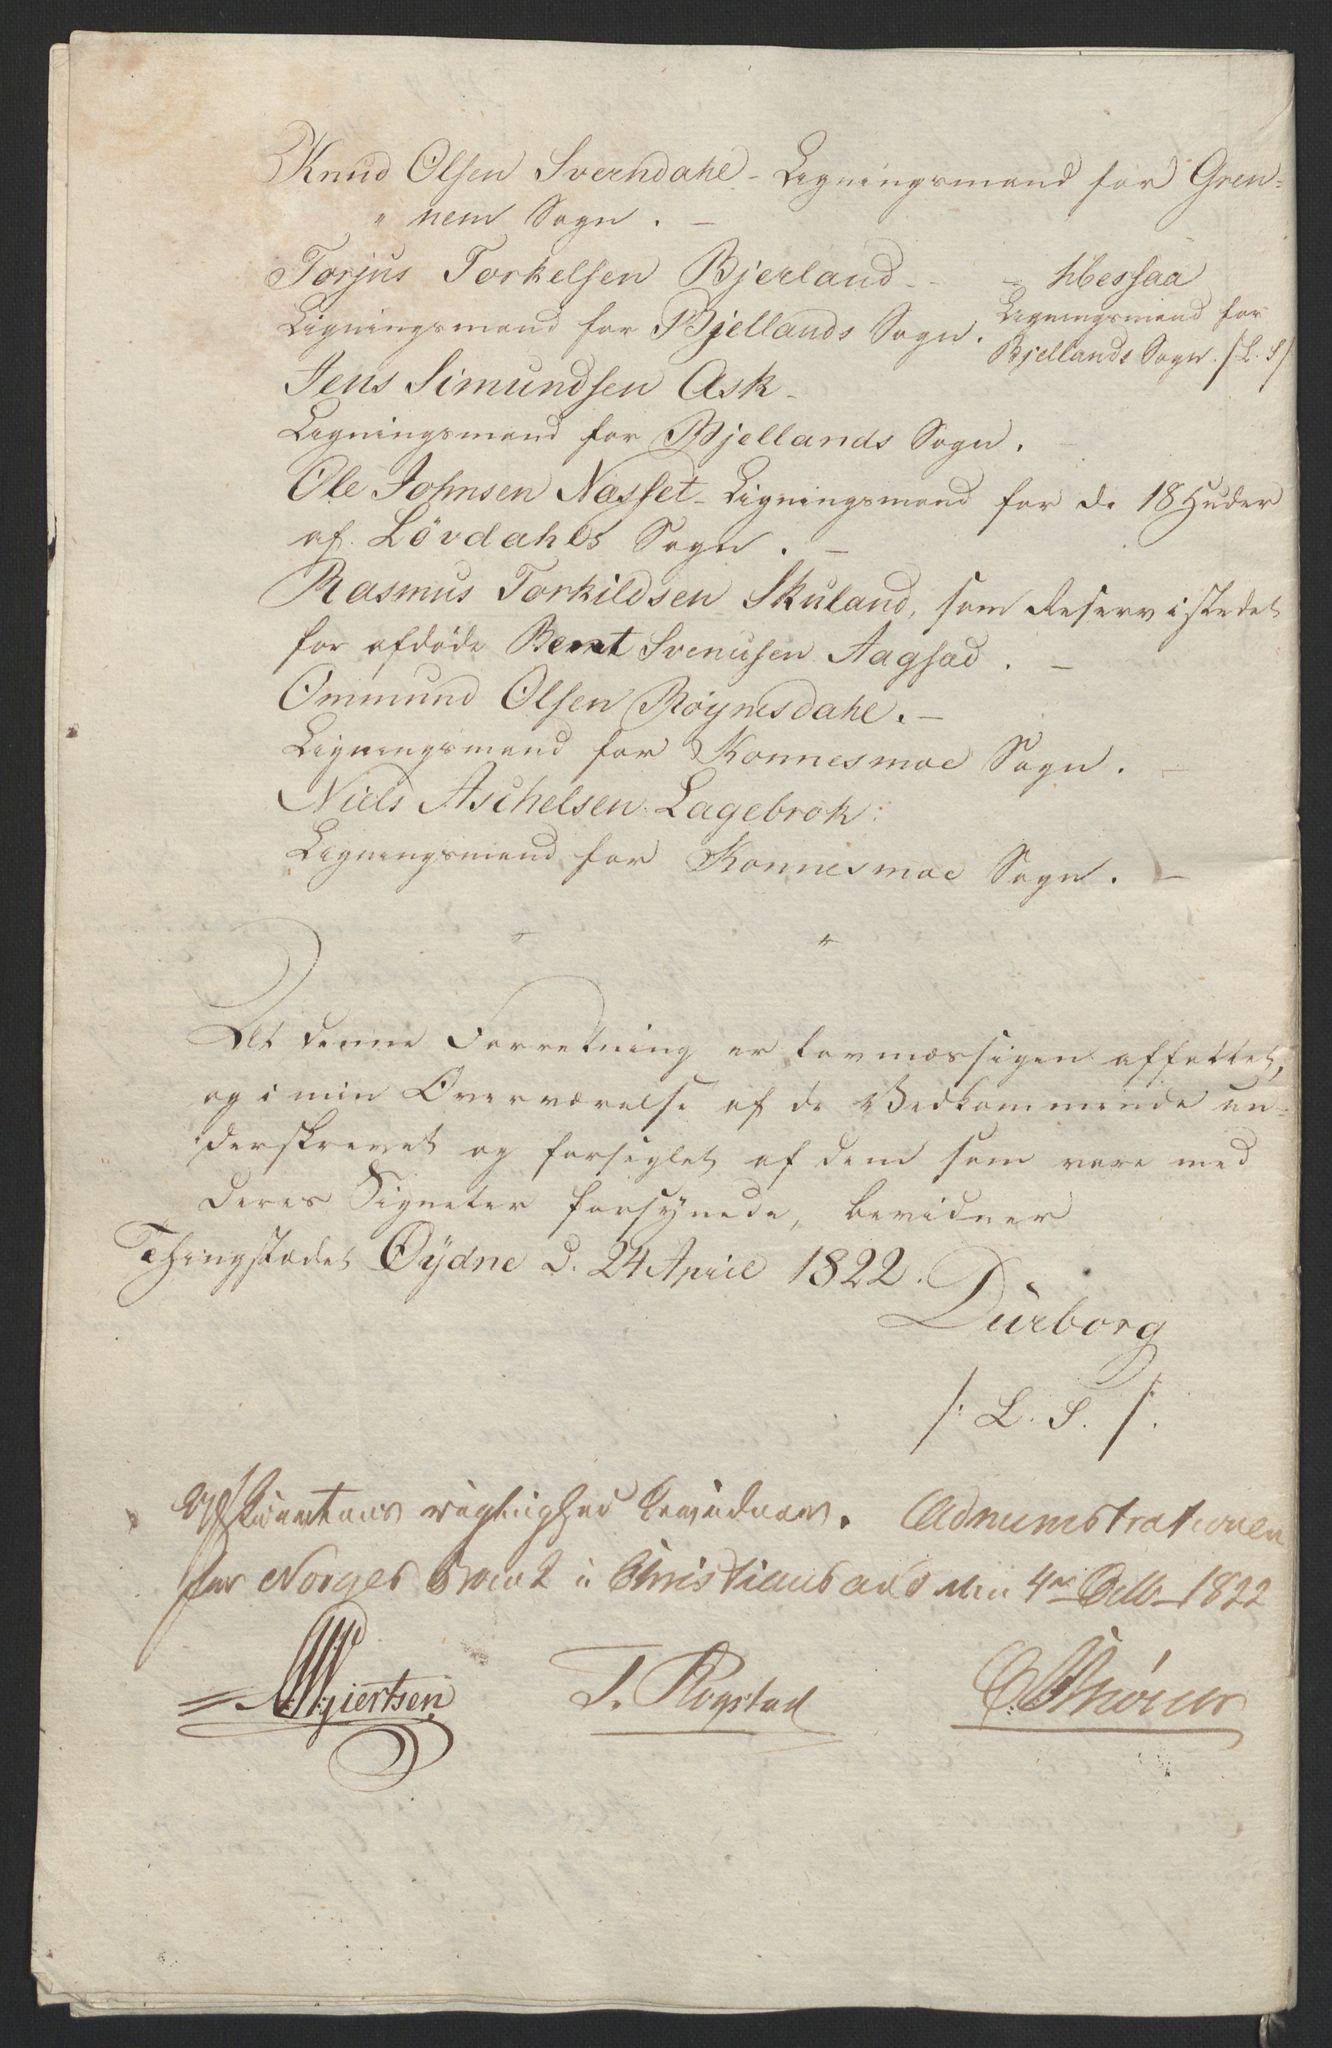 Knud Olsen Sverndahl - Ligningsmand for Gren=
" nem Sogn. -
Torjus Torkelsen Bjerland - - - Messaa
Ligningsmand for Bjellands Sogn. Ligningsmand for
Bjellands Sogn. /L. S/
Jens Simundsen Ask -
Ligningsmand for Bjellands Sogn. -
Ole Johnsen Nasset - Ligningsmand for de 18 Huder
af Lövdahls Sogn. -
Rasmus Torkildsen Skuland, som Reserv istedet
for afdöde Bernt Svenusen Aagsad. -
Ommund Olsen Röynesdahl. -
Ligningsmand for Konnesmoe Sogn. -
Niels Aschelsen Lagebrok:
Ligningsmand for Konnesmoe Sogn. -
At denne Forretning er lovmæssigen affattet,
og i min Overværelse af de Vedkommende un-
derskrevet og forseglet af dem som vare med
deres Signeter forsynede, bevidner
Thingstædet Öydne d. 24 April 1822.
Dürborg
/: L. S. /:
Afskrivtens rigtighed bevidner. Administrationen
for Norges Bank i Christiansand den 4de Octb 1822
Gjertsen
T. Rogstad